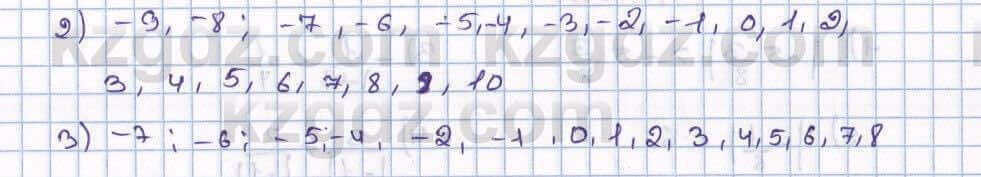 2) -9, -8; -7, -6, -5, -4, -3, -2, -1, 0, 1, 2,
3, 4, 5, 6, 7, 8, 9, 10
3) -7; -6; -5; -4, -2, -1, 0, 1, 2, 3, 4, 5, 6, 7, 8
kzgdz.com